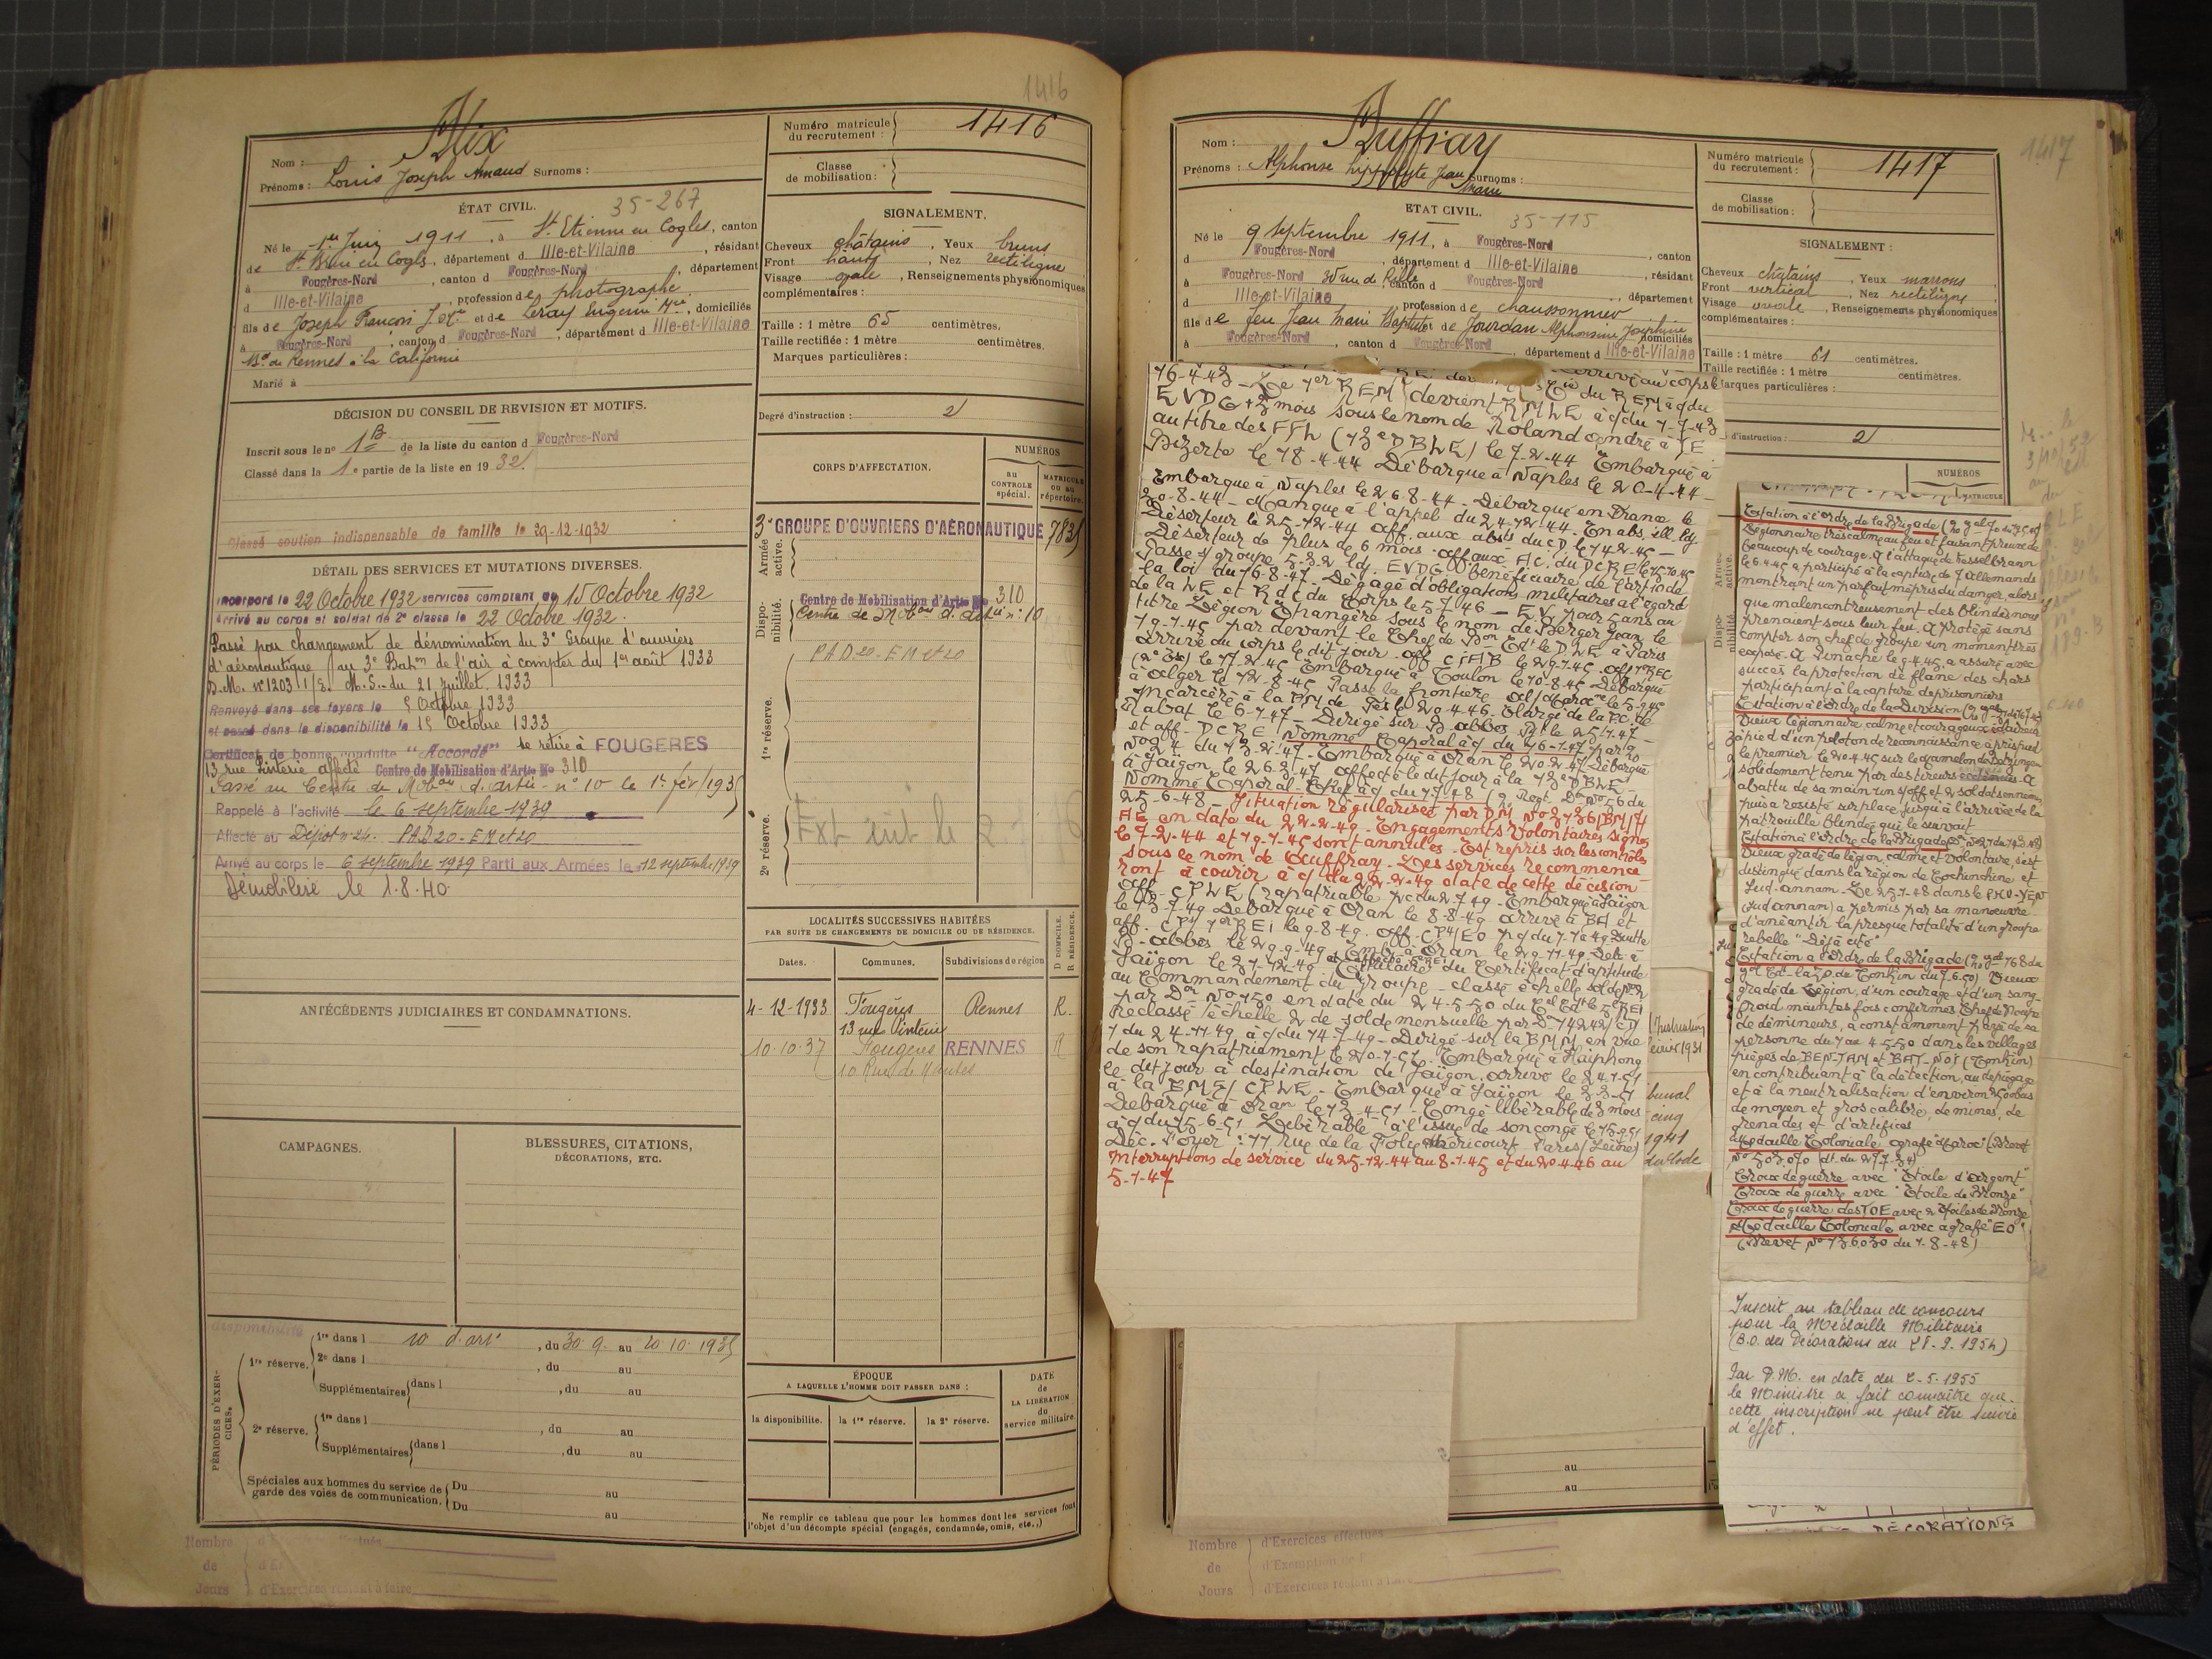 1416
Nom : Blix
Prénoms : Louis Joseph Amand Surnoms :
Numéro matricule du recrutement : 1416
Classe de mobilisation :
ÉTAT CIVIL. 35-267
Né le 1er Juin 1911, à St Etienne en Cogles, canton
de St Brice en Cogles, département d Ille-et-Vilaine, résidant
à Fougères-Nord, canton d Fougères-Nord, département
d Ille-et-Vilaine, profession de photographe
fils de Joseph François et de Leray Eugénie Mie, domiciliés
à Fougères-Nord, canton d Fougères-Nord, département d Ille-et-Vilaine
Bd de Rennes à la Californie
Marié à
SIGNALEMENT.
Cheveux châtains, Yeux bruns
Front haut, Nez rectiligne
Visage ovale, Renseignements physionomiques
complémentaires :
Taille : 1 mètre 65 centimètres.
Taille rectifiée : 1 mètre centimètres.
Marques particulières :
DÉCISION DU CONSEIL DE REVISION ET MOTIFS.
Inscrit sous le no 1B de la liste du canton d Fougères-Nord
Classé dans la 1e partie de la liste en 1932.
Classé soutien indispensable de famille le 29-12-1932
Degré d'instruction : 2
CORPS D'AFFECTATION.
NUMÉROS
au CONTROLE spécial.
MATRICULE ou au répertoire.
Armée active.
3e GROUPE D'OUVRIERS D'AÉRONAUTIQUE 7835
Disponibilité.
Centre de Mobilisation d'Artie No 310
Centre de Mobon d'Artie n° 10
1re réserve.
PAD 20 - EM et 20
2e réserve.
DÉTAIL DES SERVICES ET MUTATIONS DIVERSES.
Incorporé le 22 Octobre 1932 services comptant du 15 Octobre 1932
Arrivé au corps et soldat de 2e classe le 22 Octobre 1932.
Passé par changement de dénomination du 3e Groupe d'ouvriers
d'aéronautique au 3e Batn de l'air à compter du 1er août 1933
D.M. n° 1203 1/E. M.S. du 21 juillet 1933
Renvoyé dans ses foyers le 5 Octobre 1933
et passé dans la disponibilité le 15 Octobre 1933
Certificat de bonne conduite "Accordé" Se retire à FOUGERES
13 rue Pinterie affecté Centre de Mobilisation d'Artie No 310
Passé au Centre de Mobon d'artie n° 10 le 1er fév 1935
Rappelé à l'activité le 6 septembre 1939
Affecté au Dépôt n° 24. PAD 20 - EM et 20
Arrivé au corps le 6 septembre 1939 Parti aux Armées le 12 septembre 1939
Démobilisé le 1.8.40
LOCALITÉS SUCCESSIVES HABITÉES
PAR SUITE DE CHANGEMENTS DE DOMICILE OU DE RÉSIDENCE.
D DOMICILE. R RÉSIDENCE.
Dates. Communes. Subdivisions de région
4-12-1933 Fougères Rennes R.
13 rue Pinterie
10.10.37 Fougères RENNES R
10 Rue de Nantes
ANTÉCÉDENTS JUDICIAIRES ET CONDAMNATIONS.
CAMPAGNES.
BLESSURES, CITATIONS,
DÉCORATIONS, ETC.
disponibilité
PÉRIODES D'EXERCICES.
1re réserve. 1re dans l 10 d'artie, du 30.9 au 20.10.1935
2e dans l , du au
Supplémentaires dans l , du au
2e réserve. 1re dans l , du au
Supplémentaires dans l , du au
Spéciales aux hommes du service de garde des voies de communication. Du au
Du au
ÉPOQUE
A LAQUELLE L'HOMME DOIT PASSER DANS :
la disponibilité. la 1re réserve. la 2e réserve.
DATE de LA LIBÉRATION du service militaire.
Ne remplir ce tableau que pour les hommes dont les services font
l'objet d'un décompte spécial (engagés, condamnés, omis, etc..)
Nombre de Jours
d'Exercices restant à faire
1417
Nom : Buffray
Prénoms : Alphonse hippolyte Jean Marie Surnoms :
Numéro matricule du recrutement : 1417
Classe de mobilisation :
ETAT CIVIL. 35-115
Né le 9 septembre 1911, à Fougères-Nord
d Fougères-Nord, département d Ille-et-Vilaine, canton
à Fougères-Nord 30 rue de, canton d Fougères-Nord, résidant
d Ille-et-Vilaine, profession de chaussonnier, département
fils de feu Jean Marie Baptiste et de Jourdan Alphonsine Joséphine domiciliés
à Fougères-Nord, canton d Fougères-Nord, département d Ille-et-Vilaine
SIGNALEMENT :
Cheveux châtains, Yeux marrons
Front vertical, Nez rectiligne
Visage ovale, Renseignements physionomiques
complémentaires :
Taille : 1 mètre 61 centimètres.
Taille rectifiée : 1 mètre centimètres.
Marques particulières :
d'instruction : 2
NUMÉROS
MATRICULE
16-4-43 - Le 1er REM devient RMLE à c/ du 1-7-43
EVDG + 3 mois sous le nom de Roland André à
au titre des FFL (13e DBLE) le 7-2-44 Embarqué à
Bizerte le 18-4-44 Débarqué à Naples le 20-4-44
Embarqué à Naples le 26-8-44 - Débarqué en France le
30-8-44 - Manque à l'appel du 24-12-44. En abs. ill. ldj.
Déserteur le 25-12-44 aff. aux absts du CD le 14-2-45 -
Déserteur de plus de 6 mois - aff aux A.C. du DCRE le 15-10-45
Passe s/ groupe 5-3-2 ldj. EVDG bénéficiaire de l'art 10 de
la loi du 16-8-47 - Dégagé d'obligations militaires à l'égard
de la LE et R d c du Corps le 5-7-46 - EV pour 5 ans au
titre Légion Étrangère sous le nom de Berger Jean le
19-7-45 par devant le Chef de Bon Ct le DLE à Paris
Arrivé au corps le dit jour - aff
à Alger le 12-8-45 Passé la frontière Alg/Maroc le 5-9-45
Incarcéré à la PM de Fès le 20-4-46. Elargi de la PC de
Rabat le 6-7-47 - Dirigé sur B. abbes Arr le 25-1-47 -
et aff - DCRE Nommé Caporal à c/ du 16-1-47 par
No 24 du 13-2-47 - Embarqué à Oran le 20-2-47 - Débarqué
à Saïgon le 26-3-47 affecté le dit jour à la 13e DBLE -
Nommé Caporal-Chef à c/ du 1-7-48 (O. Regt. Don No 56 du
25-6-48 - Situation régularisée par DM No 3736/BM/1/4
AE en date du 22-2-49 - Engagements volontaires signés
le 7-2-44 et 19-7-45 sont annulés - Est repris sur les contrôles
sous le nom de Buffray. Les services recommence-
ront à courir à c/ du 22-2-49 date de cette décision
Aff. CPLE (rapatriable) pc du 2-7-49 - Embarqué à Saïgon
le 13-7-49 Débarqué à Oran le 8-8-49 arrivé à BA et
aff. CP4/1er REI le 9-8-49 - aff. CP4/EO
B. abbes le 29-9-49 - Embé à Oran le 29-11-49
Saïgon le 21-12-49 Titulaire du Certificat d'aptitude
au Commandement du groupe - classé échelle solde No 2
par Don No 150 en date du 24-5-50 du Cel Cdt le 5e REI
Reclassé échelle 2 de solde mensuelle par Don 14242/CD
1 du 24-11-49 à c/ du 14-7-49 - Dirigé sur la BMM en vue
de son rapatriement le 20-1-51 - Embarqué à Haïphong
le dit jour à destination de Saïgon. arrivé le 24-1-51
à la BM5/CPLE - Embarqué à Saïgon le 23-3-51
Débarqué à Oran le 13-4-51 - Congé libérable de 3 mois
à c/ du 15-6-51 Libérable à l'issue de son congé le 15-9-51
Déc. Foyer : 77 rue de la Folie Méricourt Paris (Seine)
Interruptions de service du 25-12-44 au 8-1-45 et du 20-4-46 au
5-1-47
Citation à l'Ordre de la Brigade
Légionnaire très calme au feu et faisant preuve de
beaucoup de courage. A l'attaque de Kesselbrann
le 6.4.45 a participé à la capture de 7 Allemands
montrant un parfait mépris du danger, alors
que malencontreusement des blindés nous
prenaient sous leur feu. A protégé sans
compter son chef de groupe un moment très
exposé. A Dunache le 9-4-45, a assuré avec
succès la protection de flanc des chars
participant à la capture de prisonniers
Citation à l'Ordre de la Division
Vieux légionnaire calme et courageux, éclaireur
à pied d'un peloton de reconnaissance a pris pied
le premier le 20-4-45 sur le mamelon de
solidement tenu par des tireurs ennemis. A
abattu de sa main un s/off et 2 soldats ennemis
puis a résisté sur place jusqu'à l'arrivée de la
patrouille blindée qui le suivait
Citation à l'Ordre de la Brigade
Vieux gradé de légion, calme et volontaire, s'est
distingué dans la région de Cochinchine et
Sud-annam. Le 25-1-48 dans le PHU-YEN
(Sud annam) a permis par sa manœuvre
d'anéantir la presque totalité d'un groupe
rebelle "Déjà cité"
Citation à l'Ordre de la Brigade (O. gal No 768 du
gal Cdt la Z.O. de Tonkin du 7.6.50) Vieux
gradé de Légion, d'un courage et d'un sang-
froid maintes fois confirmés. Chef de groupe
de démineurs, a constamment payé de sa
personne du 1 au 4-5-50 dans les villages
piégés de BEN-TAM et BAT-NOI (Tonkin)
en contribuant à la détection, au dépiégeage
et à la neutralisation d'environ 25 obus
de moyen et gros calibre, de mines, de
grenades et d'artifices
Médaille Coloniale agrafe "Maroc" (Brevet
No 503.070 dt. du 27-7-34)
Croix de guerre avec "Etoile d'Argent"
Croix de guerre avec "Etoile de Bronze"
Croix de guerre des TOE avec 2 Etoiles de Bronze
Médaille Coloniale avec agrafe "EO"
(Brevet No 136.030 du 1-8-48)
Inscrit au tableau de concours
pour la Médaille Militaire
(B.O. des Décorations du 28-9-1954)
Par D.M. en date du 2-5-1955
le Ministre a fait connaître que
cette inscription ne peut être suivie
d'effet.
au
au
DÉCORATIONS
Nombre de Jours
d'Exercices effectués
d'Exemption de
d'Exercices restant à faire